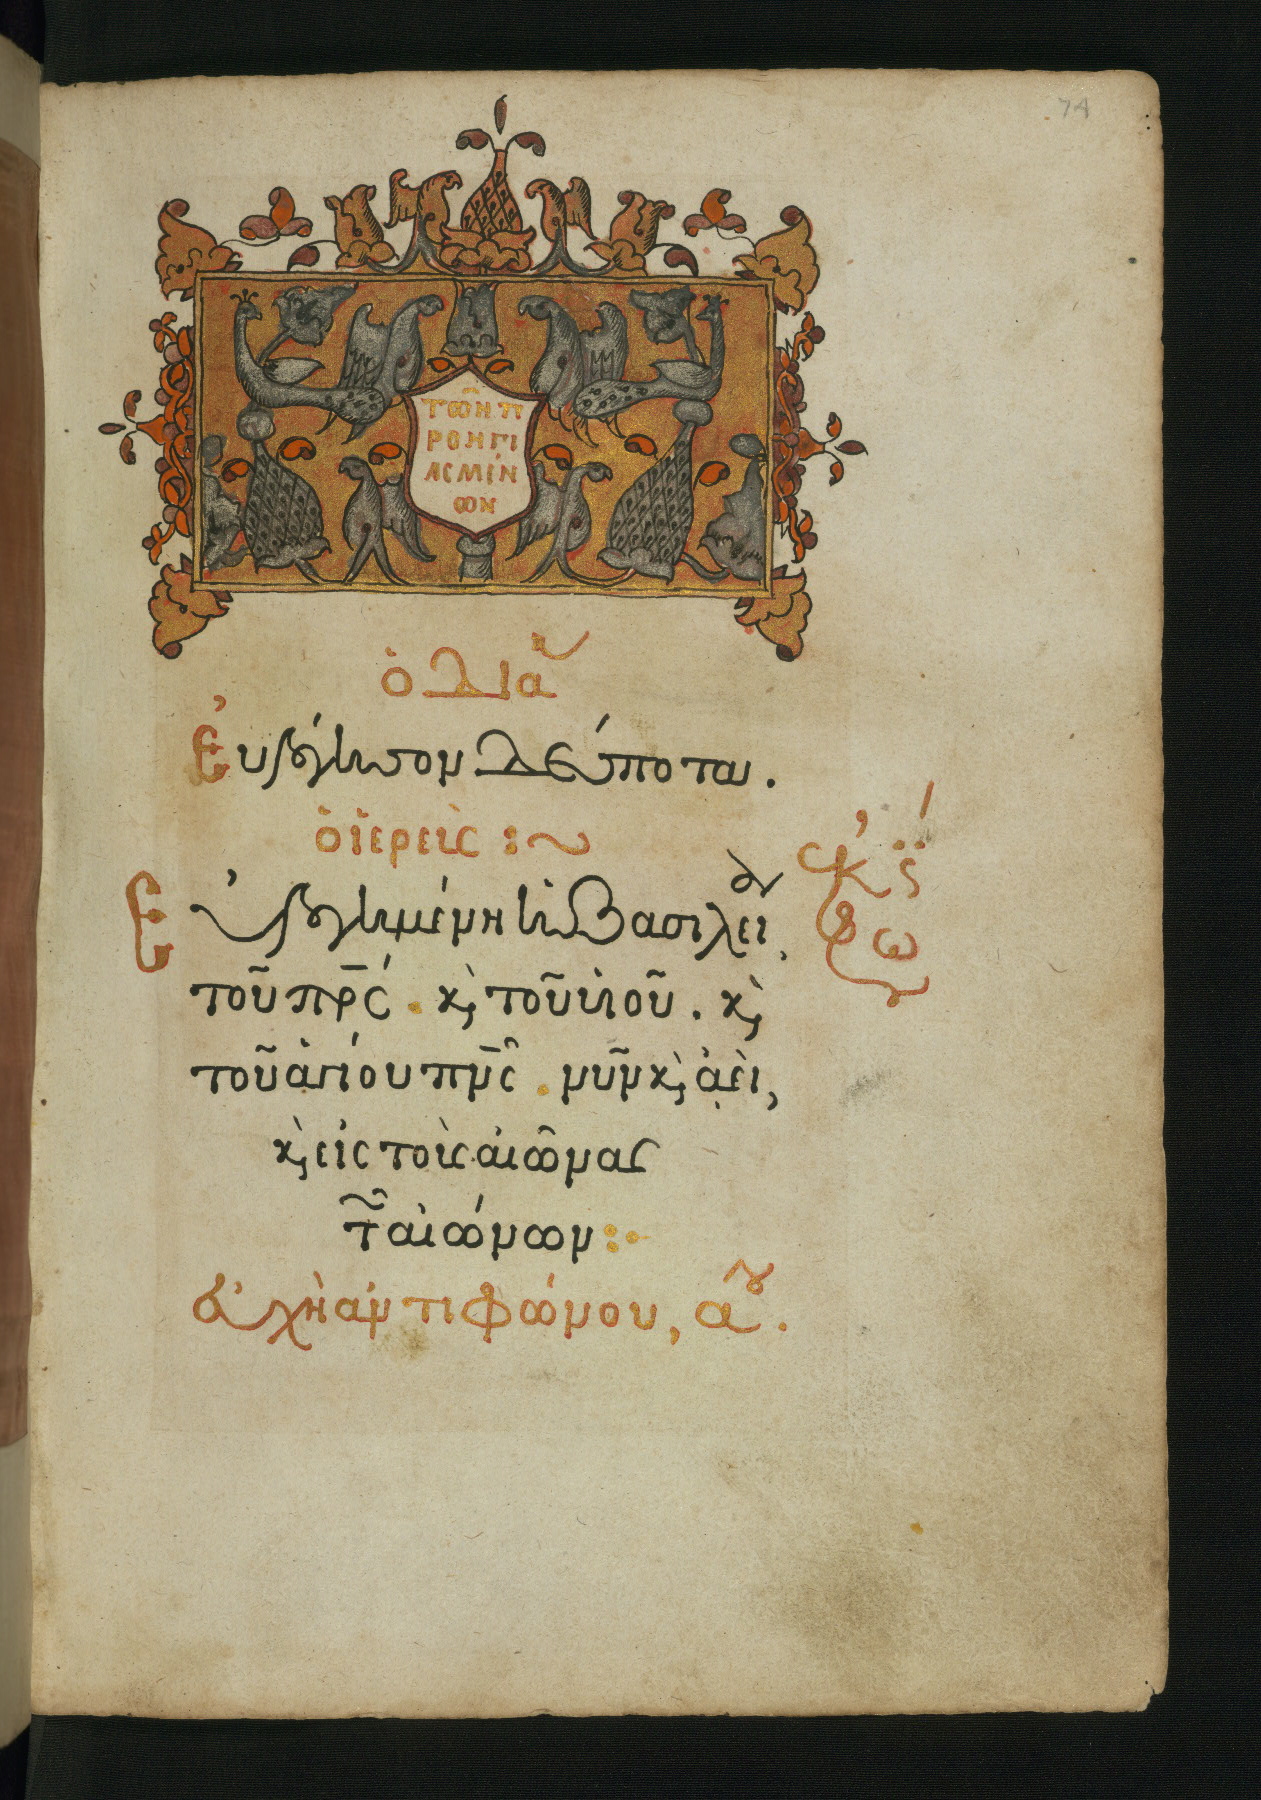 74
ΤῶΝ ΠΡ
ΡΟΗΓΙ
ΑСΜΈΝ
ωΝ
ὁ Διᾶ
Εὐλόγησον Δέσποτα.
ὁ ἱερεὺς :~
Εὐλογημένη ἡ Βασιλεία,
τοῦ πρς. κ τοῦ υἱοῦ. κ
τοῦ ἁγίου πνς. νῦν κ ἀεὶ,
κ εἰς τοὺς αἰῶνας
τ αἰώνων:·
ἀρχὴ ἀντιφώνου, α.